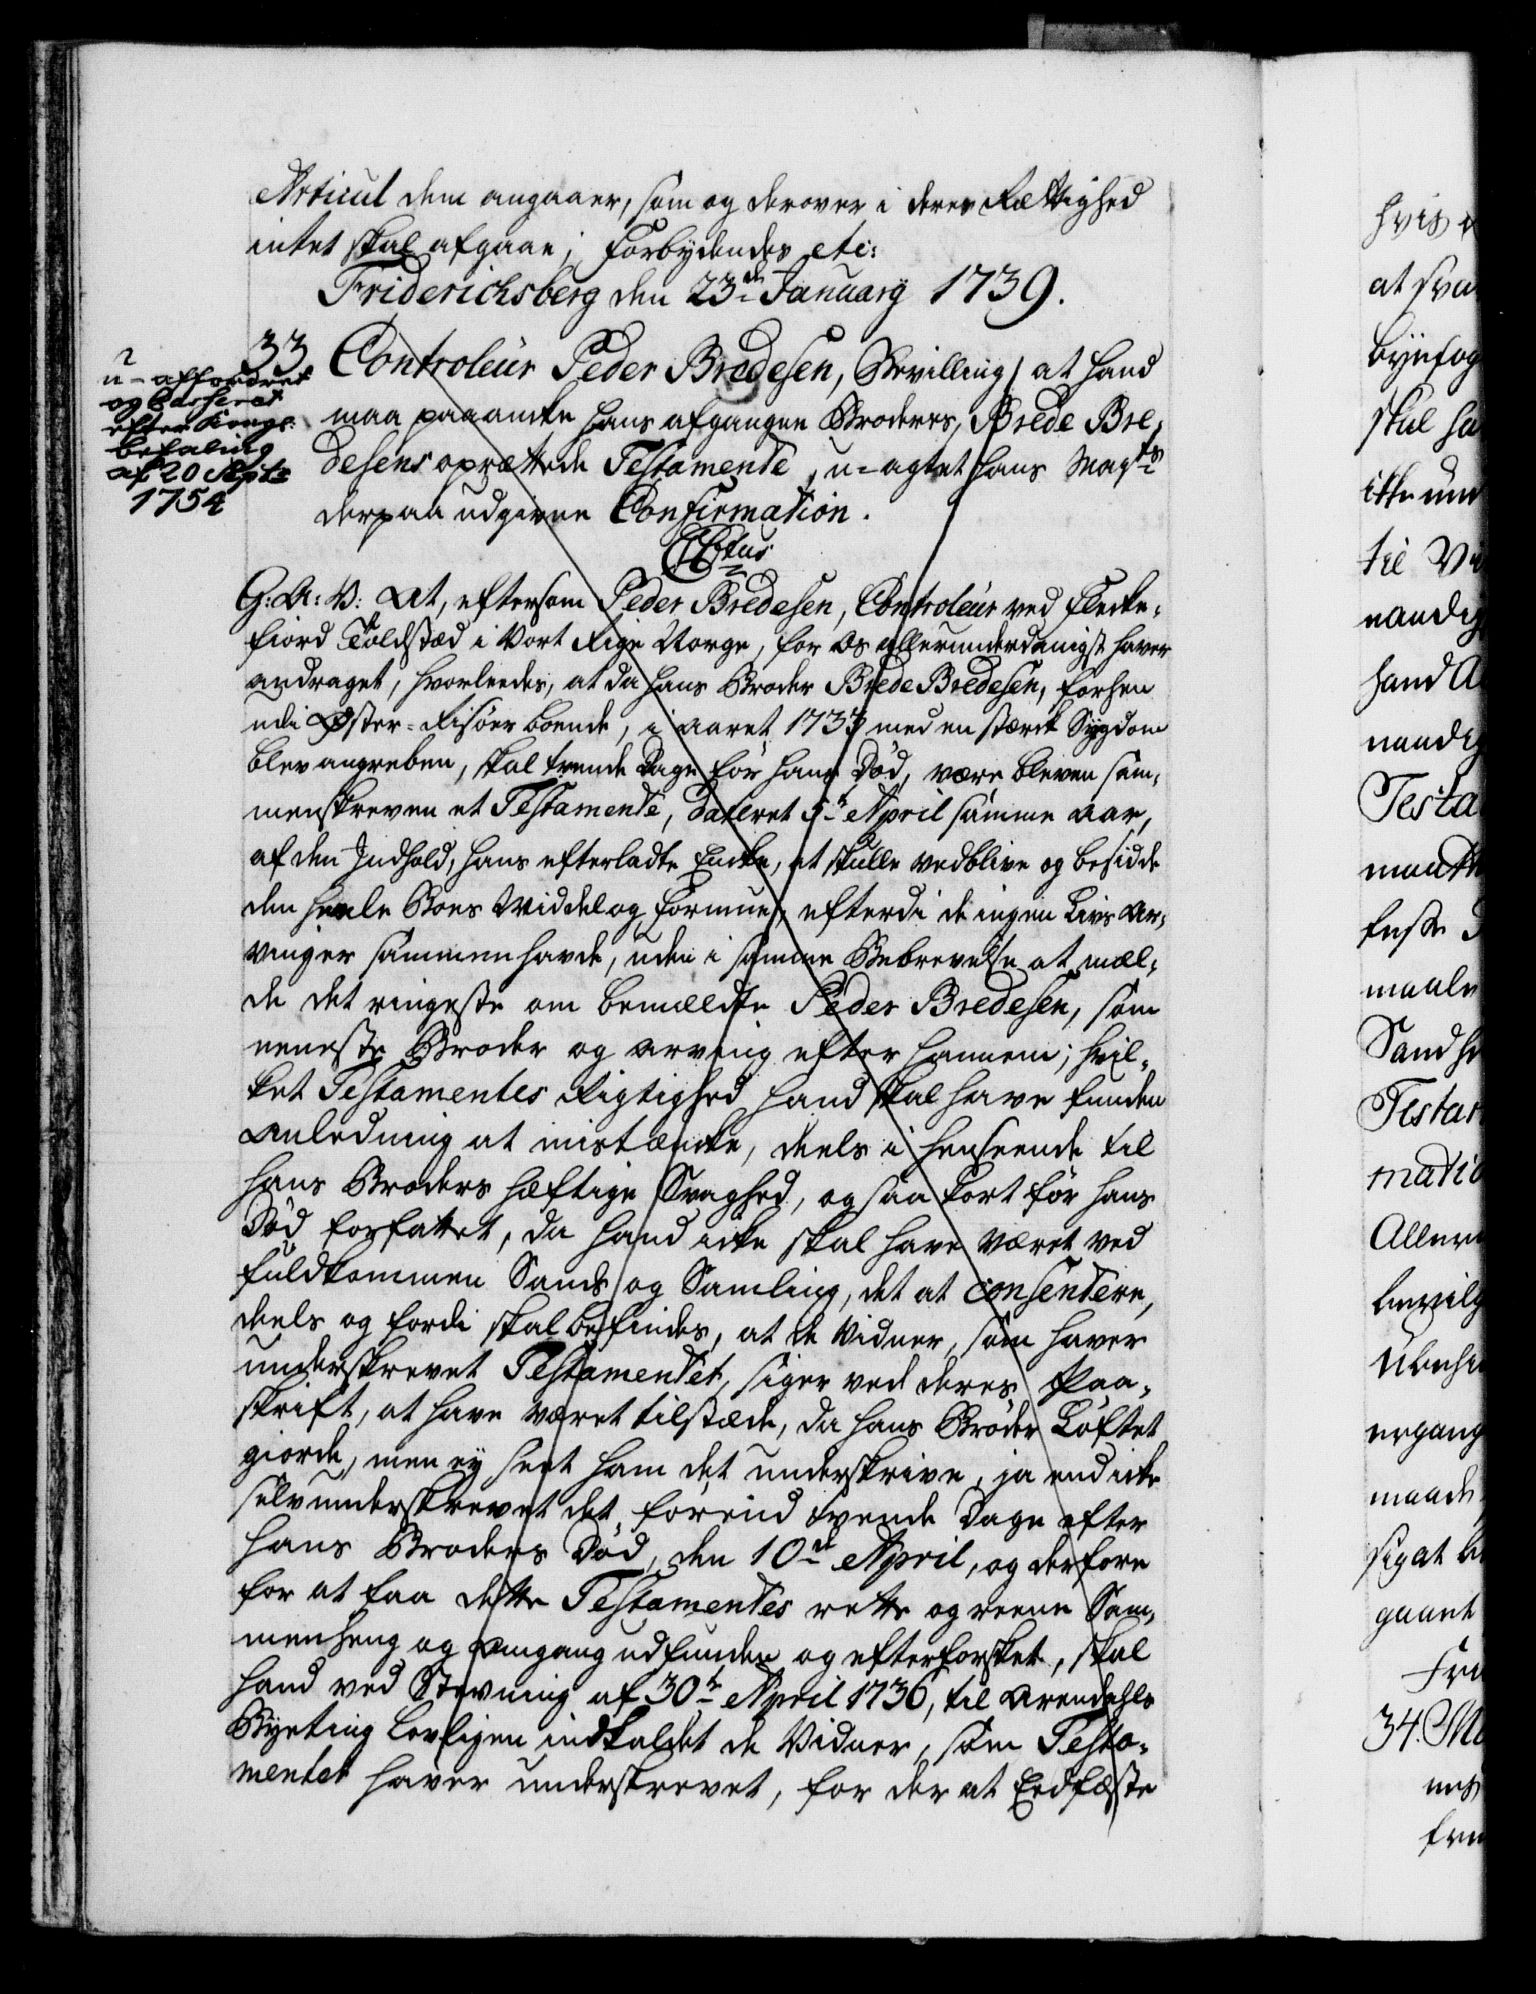 Articul dem angaaer, som og derover i deres Rettighed
intet skal afgaae; Forbydendes etc:
Friderichsberg den 23de January 1739.
33
Controleur Peder Bredesen, Bevilling, at hand
maa paaancke hans afgangne Broders, Brede Bre-
desens oprettede Testamente, u-agtet hans Mayts
derpaa udgivne Confirmation.
n
u-affordret
og Casseret
efter Kongl.
befaling
af 20 Septr
1754
CCtus
G: A: V: At, eftersom Peder Bredesen, Controleur ved Flecke-
fiord Toldstæd i Vort Rige Norge, for Os allerunderdanigst haver
andraget, hvorledes, at da hans Broder Brede Bredesen, forhen
udi Øster-Risøer boende, i aaret 1733 med en stærk Sygdom
blev angreben, skal trende Dage før hans Død, være bleven sam-
menskreven et Testamente, dateret 5te April samme aar,
af den Indhold, hans efterladte Encke, at skulle vedblive og besidde
den heele Boes Middel og Formue, efterdi de ingen Livs Ar-
vinger sammen havde, uden i samme Bebrevelse at mæl-
de det ringeste om bemældte Peder Bredesen, som
neneste Broder og arving efter hannem; hvil-
ket Testamentes Rigtighed hand skal have funden
Anledning at mistæncke, deels i henseende til
hans Broders hæftige Svaghed, og saa kort før hans
Død forfattet, da hand icke skal have været ved
fuldkommen Sands og Samling, det at consentere,
deels og fordi skal befindes, at de Vidner, som haver
underskrevet Testamentet, siger ved deres Paa-
skrift, at have været tilstæde, da hans Broder Løftet
giorde, men ey seet ham det underskrive, ja end icke
selv underskrevet det, førend tvende Dage efter
hans Broders Død, den 10de April, og derfore
for at faa dette Testamentes rette og reene Sam-
menheng og omgang udfunden og efterforsket, skal
hand ved Stevning af 30te April 1736, til Arendahls
Byeting lovligen indkaldet de Vidner, som Testa-
mentet haver underskrevet, for der at Eedfæste